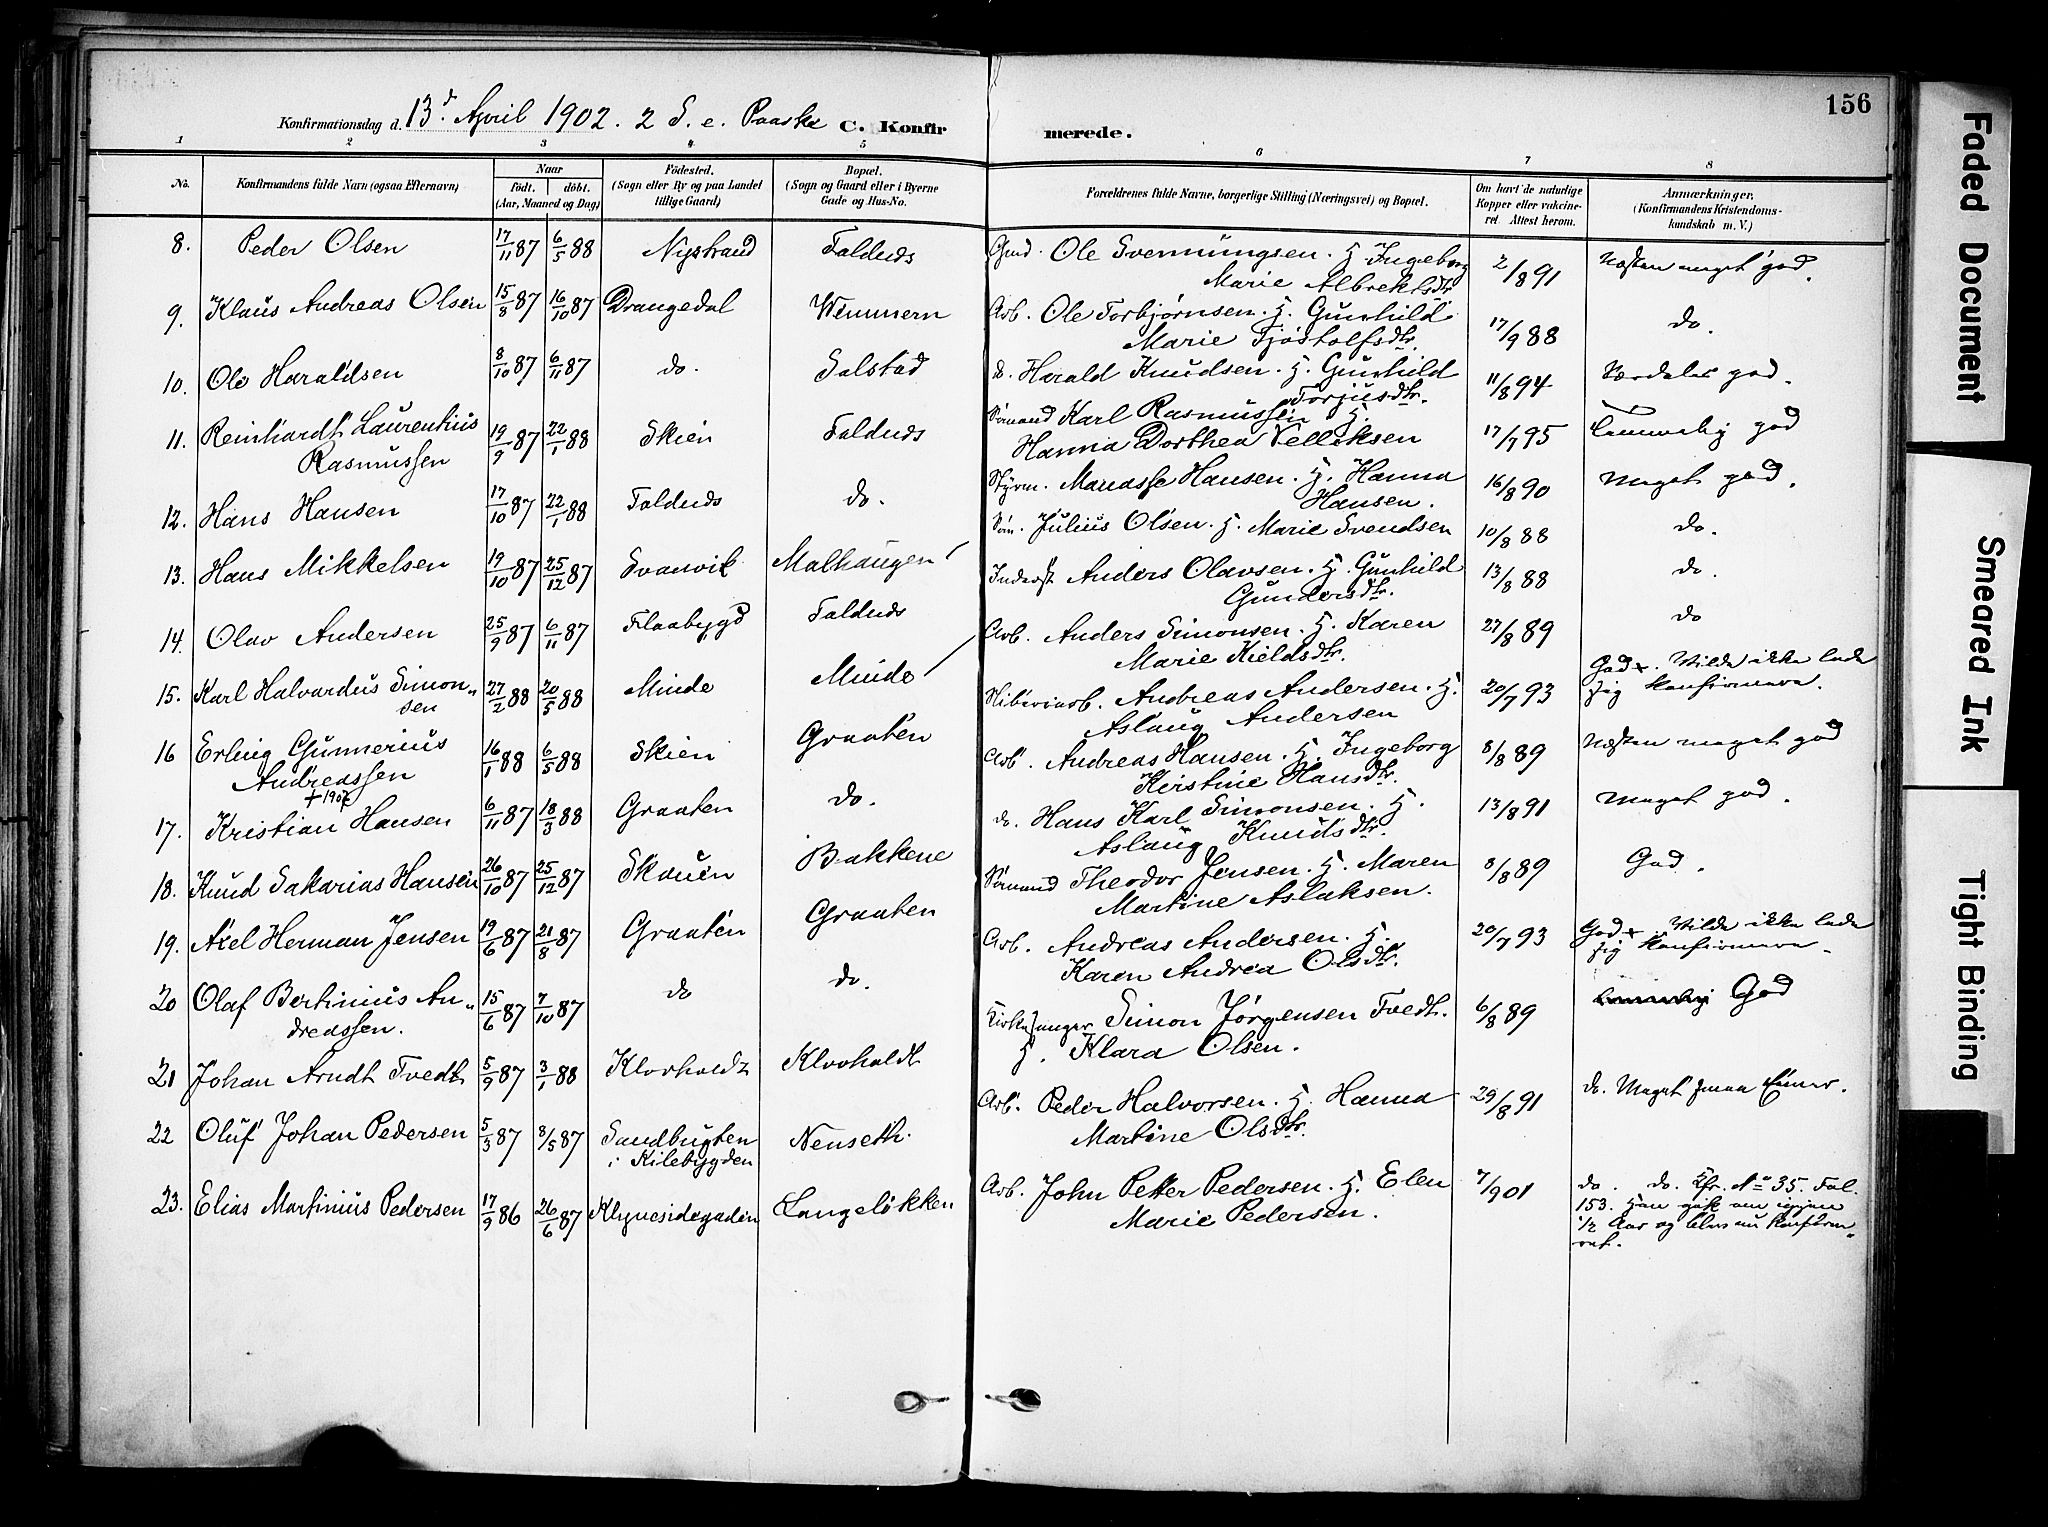 156
Konfirmationsdag d. 13d April 1902. 2 S. e. Paaske C. Konfirmerede.
1 2 3 4 5 6 7 8
No. Konfirmandens fulde Navn (ogsaa Efternavn) Naar födt. döbt. (Aar, Maaned og Dag) Födested. (Sogn eller By og paa Landet tillige Gaard) Bopæl. (Sogn og Gaard eller i Byerne Gade og Hus-No. Forældrenes fulde Navne, borgerlige Stilling (Næringsvei) og Bopæl. Om havt de naturlige Kopper eller vakcineret. Attest herom. Anmærkninger. (Konfirmandens Kristendomskundskab m. V.)
8. Peder Olsen 17/11 87 6/5 88 Nystrand Faldnds Gmd. Ole Svennungsen. H. Ingeborg Marie Albrektsdtr 2/8 91 Næsten meget god.
9. Klaus Andreas Olsen 15/8 87 16/10 87 Drangedal Wemmern Arb. Ole Torbjørnsen. H. Gunhild Marie Tjøstolfsdtr. 17/9 88 do.
10. Ole Haraldsen 8/10 87 6/11 87 do. Solstad do. Harald Knudsen. H. Gunhild Torjusdtr. 11/8 94 Særdeles god.
11. Reinhardt Laurentius Rasmussen 19/9 87 22/1 88 Skien Faldnds Sømand Karl Rasmussen H. Hanna Dorthea Tellefsen 17/7 95 Temmelig god
12. Hans Hansen 17/10 87 22/1 88 Faldnds do. Styrm. Manasse Hansen. H. Hanna Hansen. 16/8 90 Meget god.
Søm. Julius Olsen. H. Marie Svendsen 10/8 88 do.
13. Hans Mikkelsen 19/10 87 25/12 87 Svanvik Malhaugen
Inderst Anders Olavsen. H. Gunhild Gundersdtr. 13/8 88 do.
14. Olav Andersen 25/9 87 6/11 87 Flaabygd Faldnds
Arb. Anders Simonsen. H. Karen Marie Kieldsdtr. 27/8 89 do
15. Karl Halvardus Simonsen 27/2 88 20/5 88 Minde Minde
Andreas Andersen. H. Aslaug Andersen 20/7 93 God +. Vilde ikke lade sig konfirmere.
16 Erling Gunnerius Andreassen 16/1 88 6/5 88 Skien Graaten
Arb. Andreas Hansen. H. Ingeborg Kirstine Hansdtr. 8/8 89 Næsten meget god
+ 1907
17. Kristian Hansen 6/11 87 18/3 88 Graaten do.
do. Hans Karl Simonsen. H. Aslaug Knudsdtr. 13/8 91 Meget god.
18. Knud Sakarias Hansen 26/10 87 25/12 87 Skauen Bakkene
Sømand Theodor Jensen. H. Maren Martine Aslaksen. 8/8 89 God.
19. Axel Herman Jensen 19/6 87 21/8 87 Graaten Graaten
Arb. Andreas Andersen. H. Karen Andrea Olsdtr. 20/7 93 God + Vilde ikke lade sig konfirmere.
20 Olaf Bertinius Andreassen. 15/6 87 7/10 87 do do.
Kirkesanger Simon Jørgensen Tvedt. H. Klara Olsen. 6/8 89 God
21 Johan Arndt Tvedt 5/9 87 3/1 88 Klovholdt Klovholdt
Arb. Peder Halvorsen. H. Hanna Martine Olsdtr. 29/8 91 do. Meget smaa Evner.
22 Oluf Johan Pedersen 5/3 87 8/5 87 Sandbugten i Kilebygden Nenseth.
Arb. John Petter Pedersen. H. Elen Marie Pedersen. 7/9 01 do. do. Kfr. No 35. Fol. 153. Han gik om igjen 1/2 Aar og blev nu konfirmeret.
23. Elias Martinius Pedersen 17/9 86 26/6 87 Klynesidegaden Langeløkken
Faded Document
Smeared Ink
Tight Binding